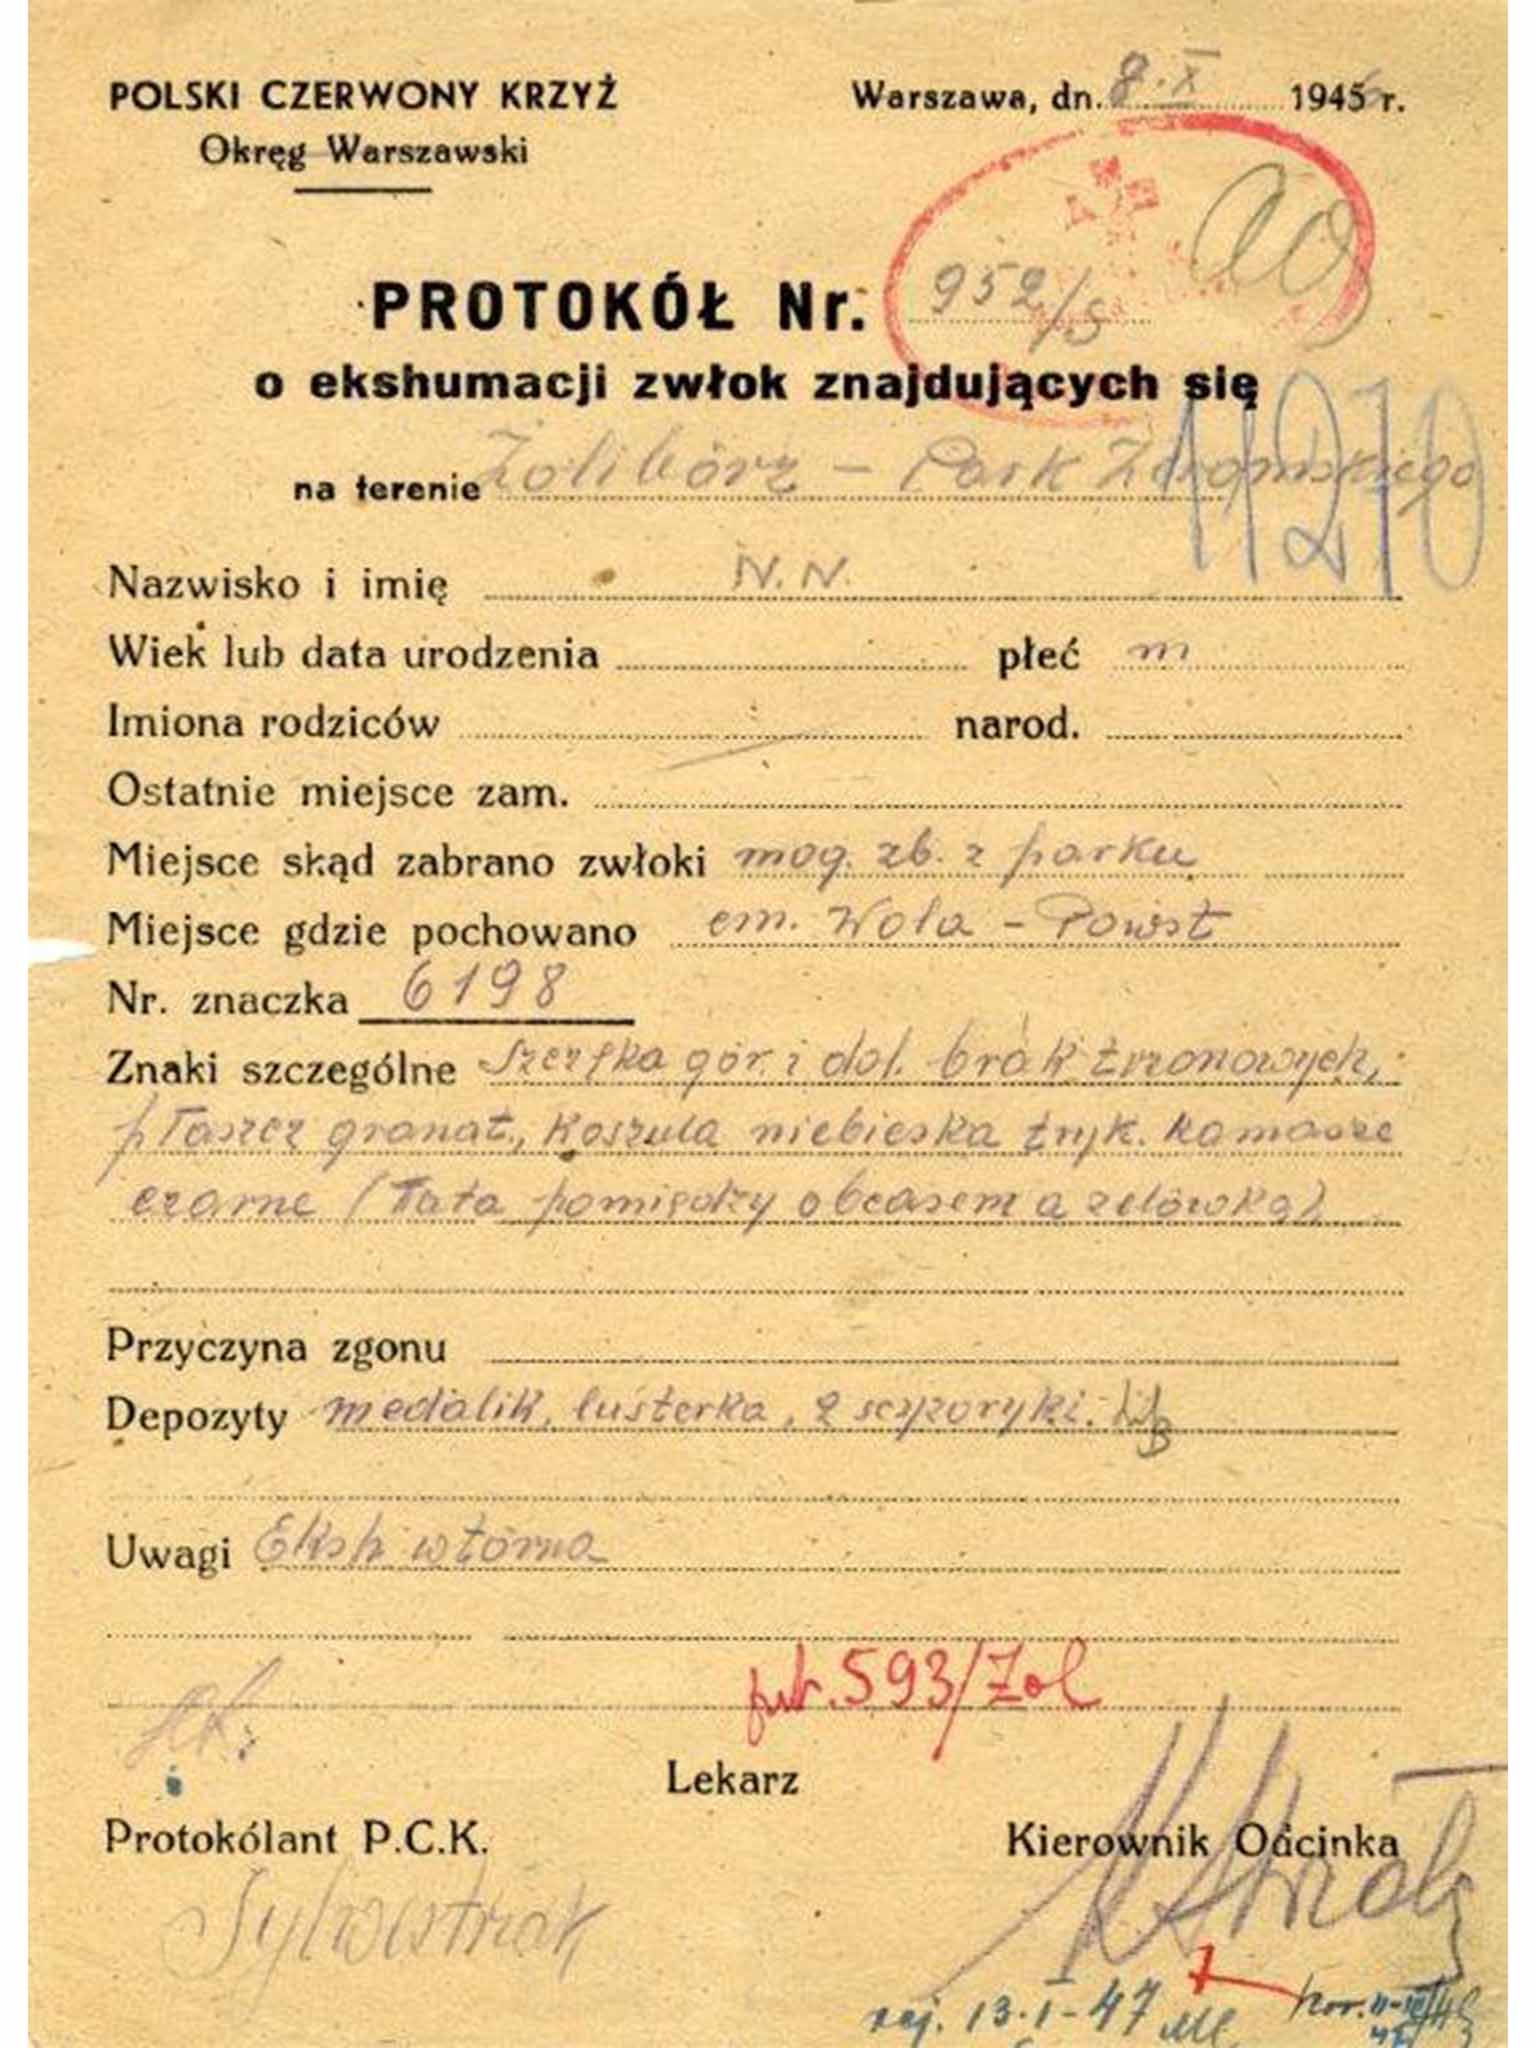 POLSKI CZERWONY KRZYŻ
Okręg Warszawski
Warszawa, dn. 8.X 1946 r.
PROTOKÓŁ Nr. 952/S
o ekshumacji zwłok znajdujących się
11270
na terenie Żolibórz – Park Żeromskiego
Nazwisko i imię N.N.
Wiek lub data urodzenia płeć m
Imiona rodziców narod.
Ostatnie miejsce zam.
Miejsce skąd zabrano zwłoki mog. zb. z parku
Miejsce gdzie pochowano cm. Wola – Powst
Nr. znaczka 6198
Znaki szczególne Szczęka gór. i dol. brak trzonowych,
płaszcz granat., koszula niebieska tryk. kamasze
czarne (łata pomiędzy obcasem a zelówką)
Przyczyna zgonu
Depozyty medalik, lusterka, 2 scyzoryki.
Uwagi Eksh wtórna
prt. 593/Żol
Lekarz
Protokólant P.C.K.
Kierownik Odcinka
Sylwestrzak
rej. 13.I-47